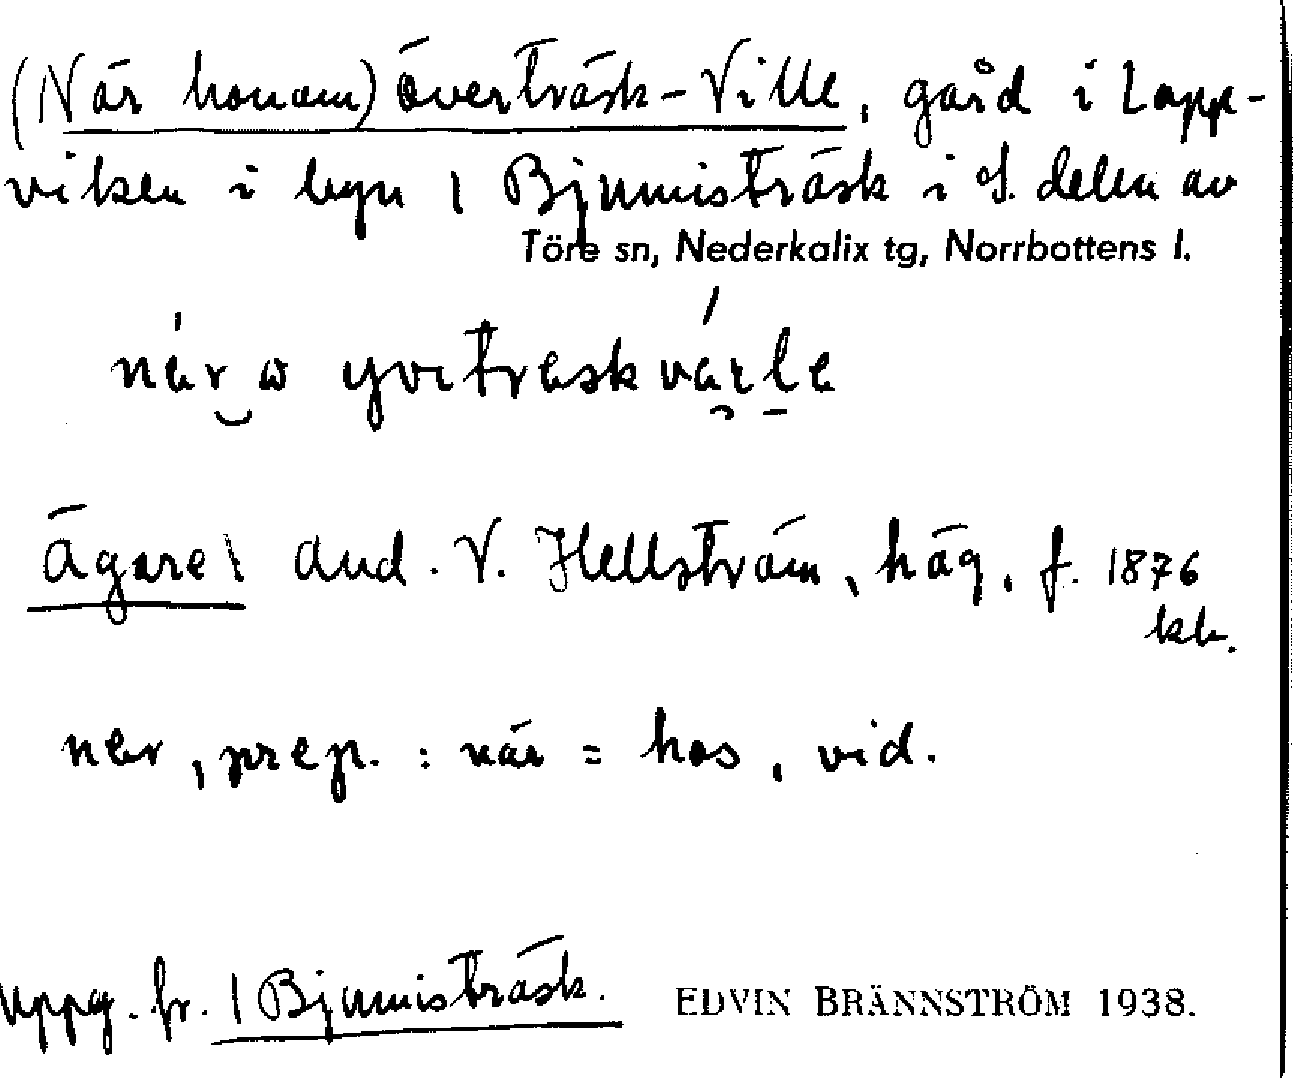 (När honom) överträsk-Ville, gård i Lapp-
viken i byn | Bjumisträsk i S. delen av
Töre sn, Nederkalix tg, Norrbottens l.
ägare \ And. V. Hellström, häg, f. 1876
kb.
ner, prep. : när = hos, vid.
uppg. fr. | Bjumisträsk. EDVIN BRÄNNSTRÖM 1938.